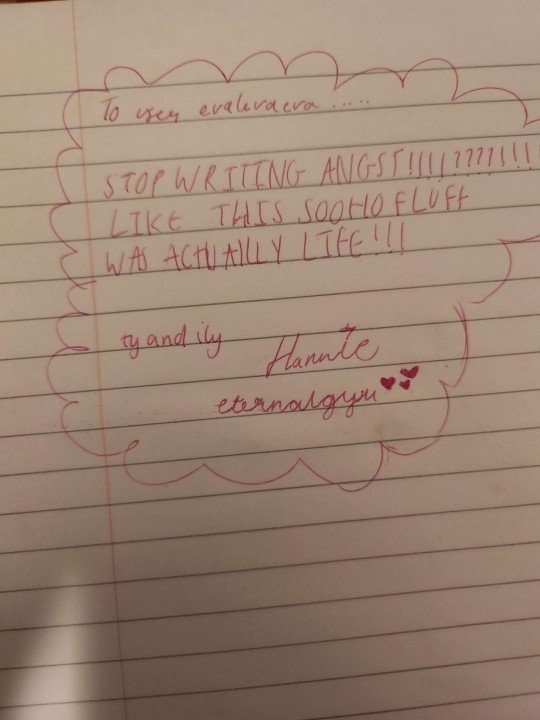 To user evalevaeva .....
STOP WRITING ANGST!!!!????!!!!
LIKE THIS SOOHO FLUFF
WAS ACTUALLY LIFE!!!
ty and ily
Hannie
eternalgyu